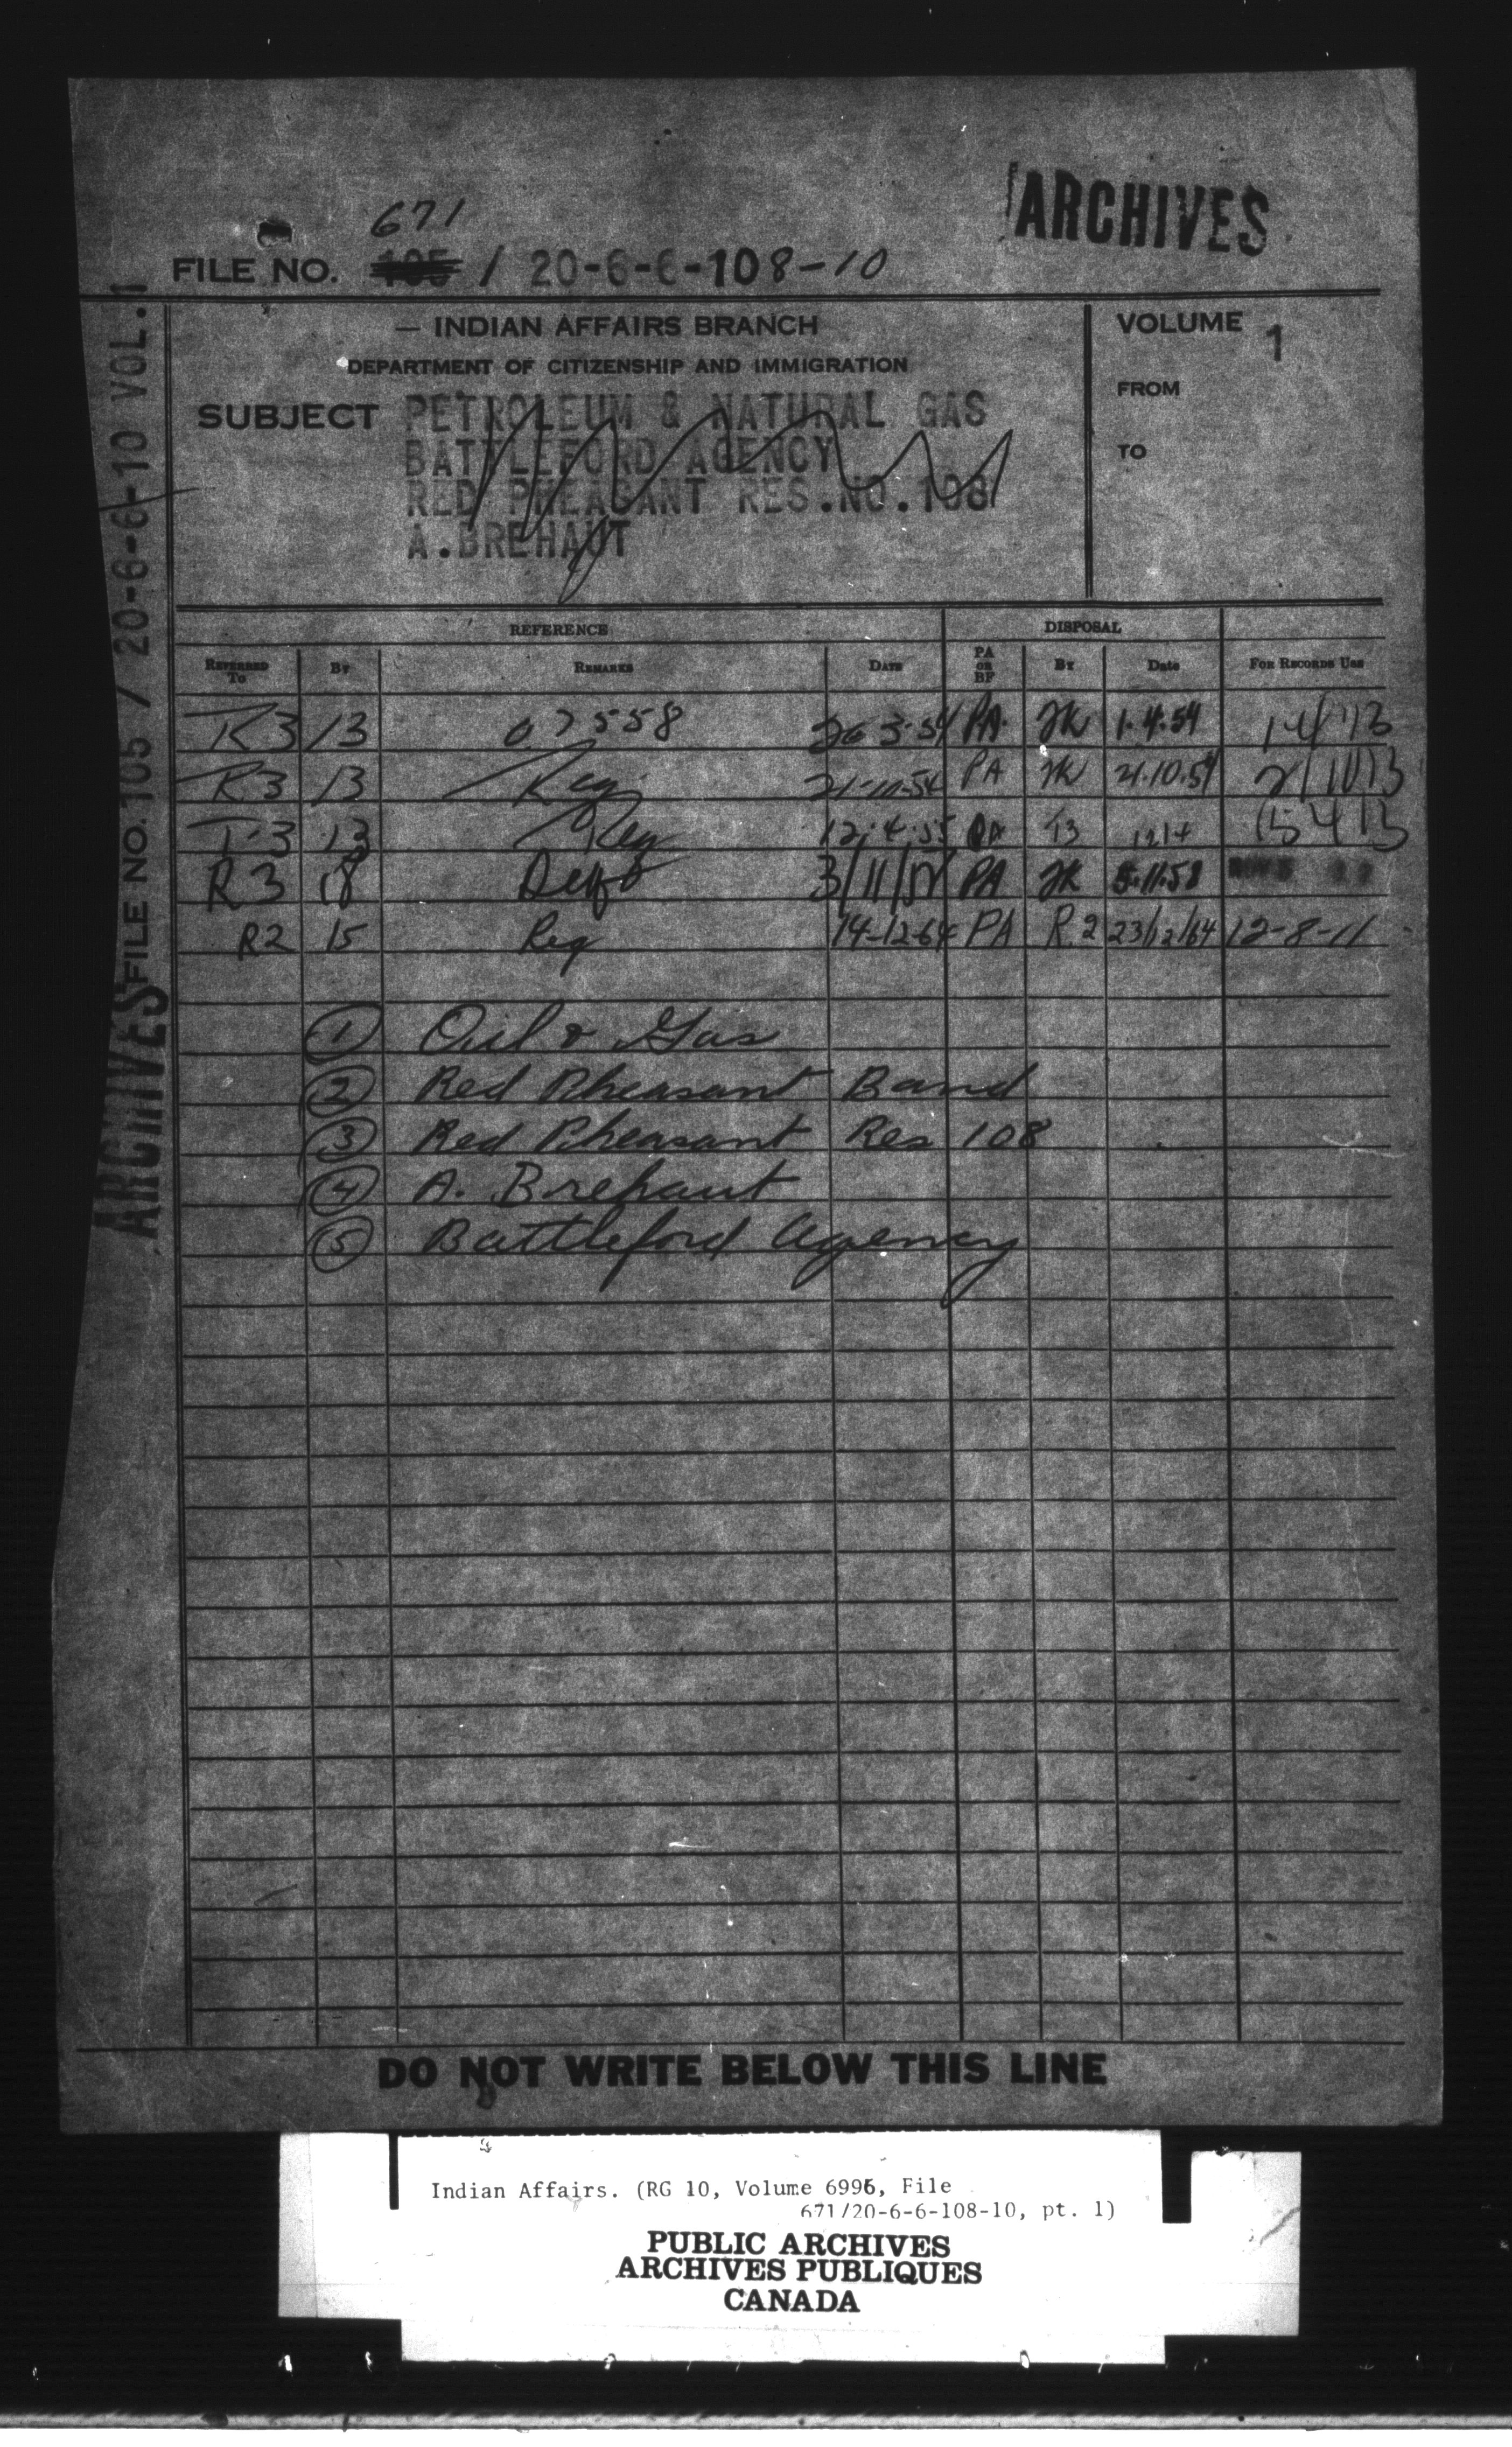 ARCHIVES
671
FILE NO. 105 / 20-6-6-108-10
— INDIAN AFFAIRS BRANCH
DEPARTMENT OF CITIZENSHIP AND IMMIGRATION
SUBJECT PETROLEUM & NATURAL GAS
BATTLEFORD AGENCY
RED PHEASANT RES.NO.108
A.BREHAUT
VOLUME 1
FROM
TO
ARCHIVES FILE NO. 105 / 20-6-6-10 VOL.1
REFERENCE DISPOSAL
REFERRED TO BY REMARKS DATE PA OR BF BY DATE FOR RECORDS USE
R3 13 07558 26·3·54 PA JK 1·4·54
R3 13 Reg 21-10-54 PA JK 21·10·54
T-3 13 Reg 12·4·55 PA T3 12/4
R3 18 3/11/58 PA JK 5·11·58
R2 15 Reg 14-12-64 PA R2 23/12/64 12-8-11
① Oil & Gas
② Red Pheasant Band
③ Red Pheasant Res 108
④ A. Brehaut
⑤ Battleford Agency
DO NOT WRITE BELOW THIS LINE
Indian Affairs. (RG 10, Volume 6996, File
671/20-6-6-108-10, pt. 1)
PUBLIC ARCHIVES
ARCHIVES PUBLIQUES
CANADA